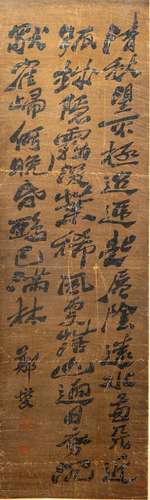 清秋望不極迢遞起層陰遠水兼天淨
孤城隱霧深葉稀風更落山迥日初沉
獨鶴歸何晚昏鴉已滿林
鄭燮